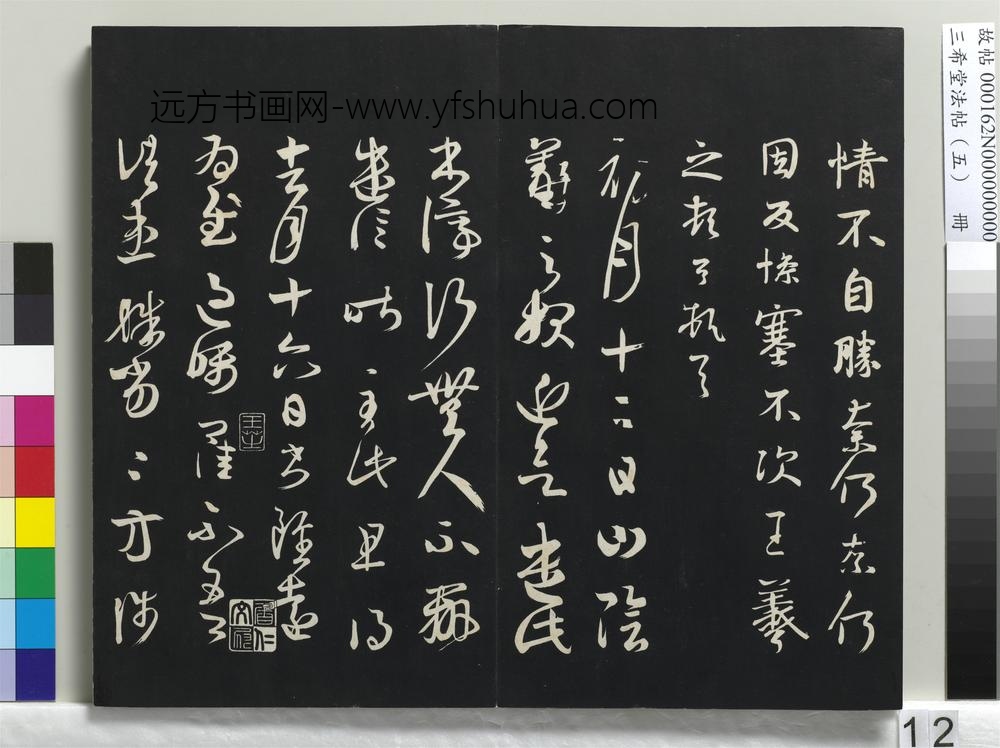 远方书画网-www.yfshuhua.com
情不自勝奈何奈何
因反慘塞不次王羲
之頓首頓首
初月十二日山陰
羲之報近欲遣此
書停行無人不辦
遣信昨至此且得
去月十六日書雖遠
為慰過囑卿佳不吾
諸患殊劣〻方涉
王芝
故帖 000162N000000000
三希堂法帖（五） 冊
12